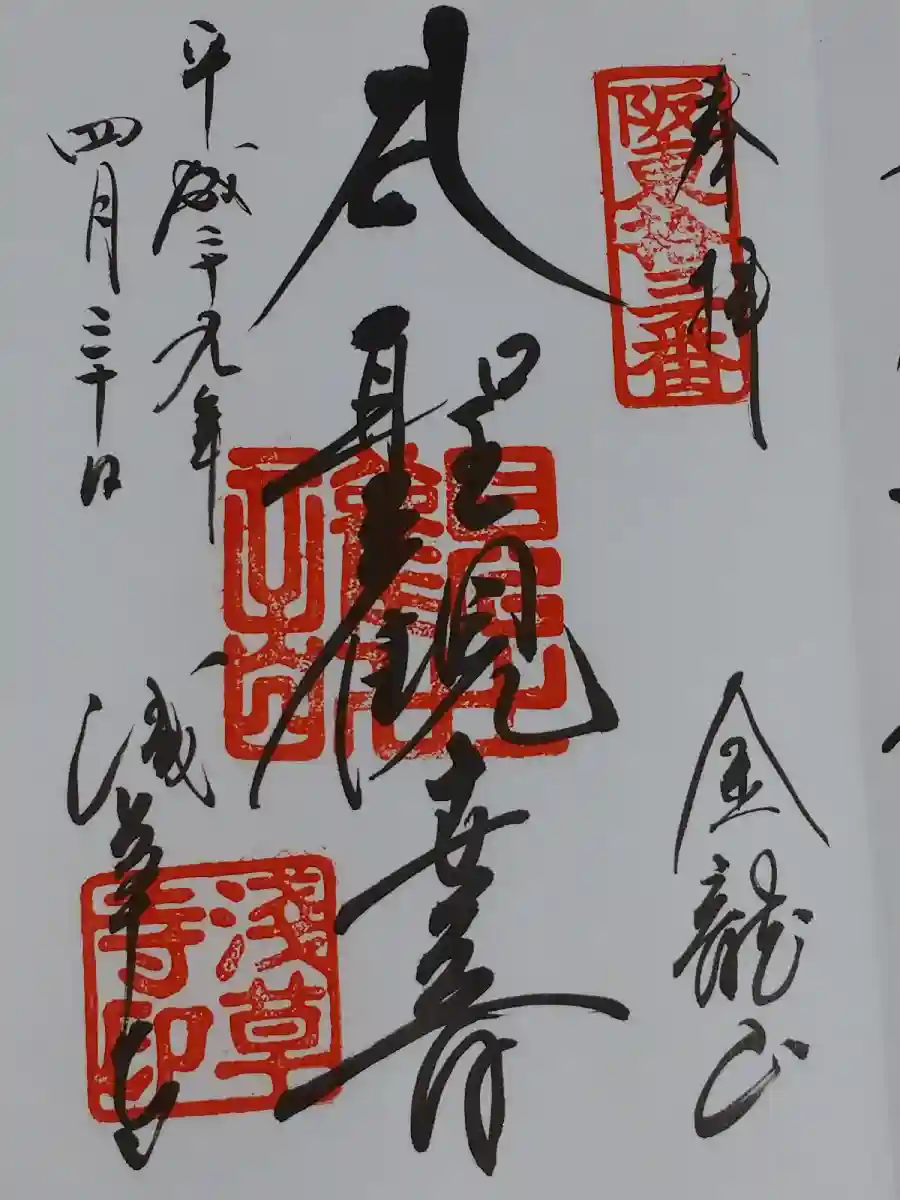 奉拝
阪東拾三番
金龍山
聖観世音
平成二十九年
四月二十日
浅草寺
淺草寺印